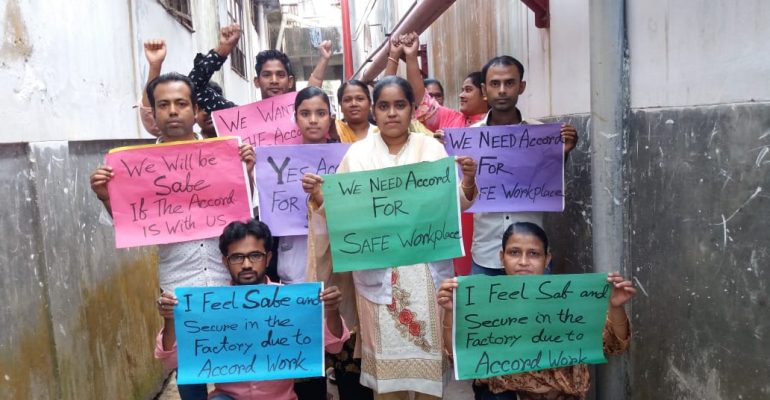 We Want
HE Accor
We Will be
Sabe
If The Accord
is With us
Yes Ac
For
We Need Accord
For
Safe Workplace
We Need Accord
For
SAFE Workplace
I Feel Sabe and
Secure in the
Factory due to
Accord Work
I Feel Sab and
Secure in the
Factory due to
Accord Work